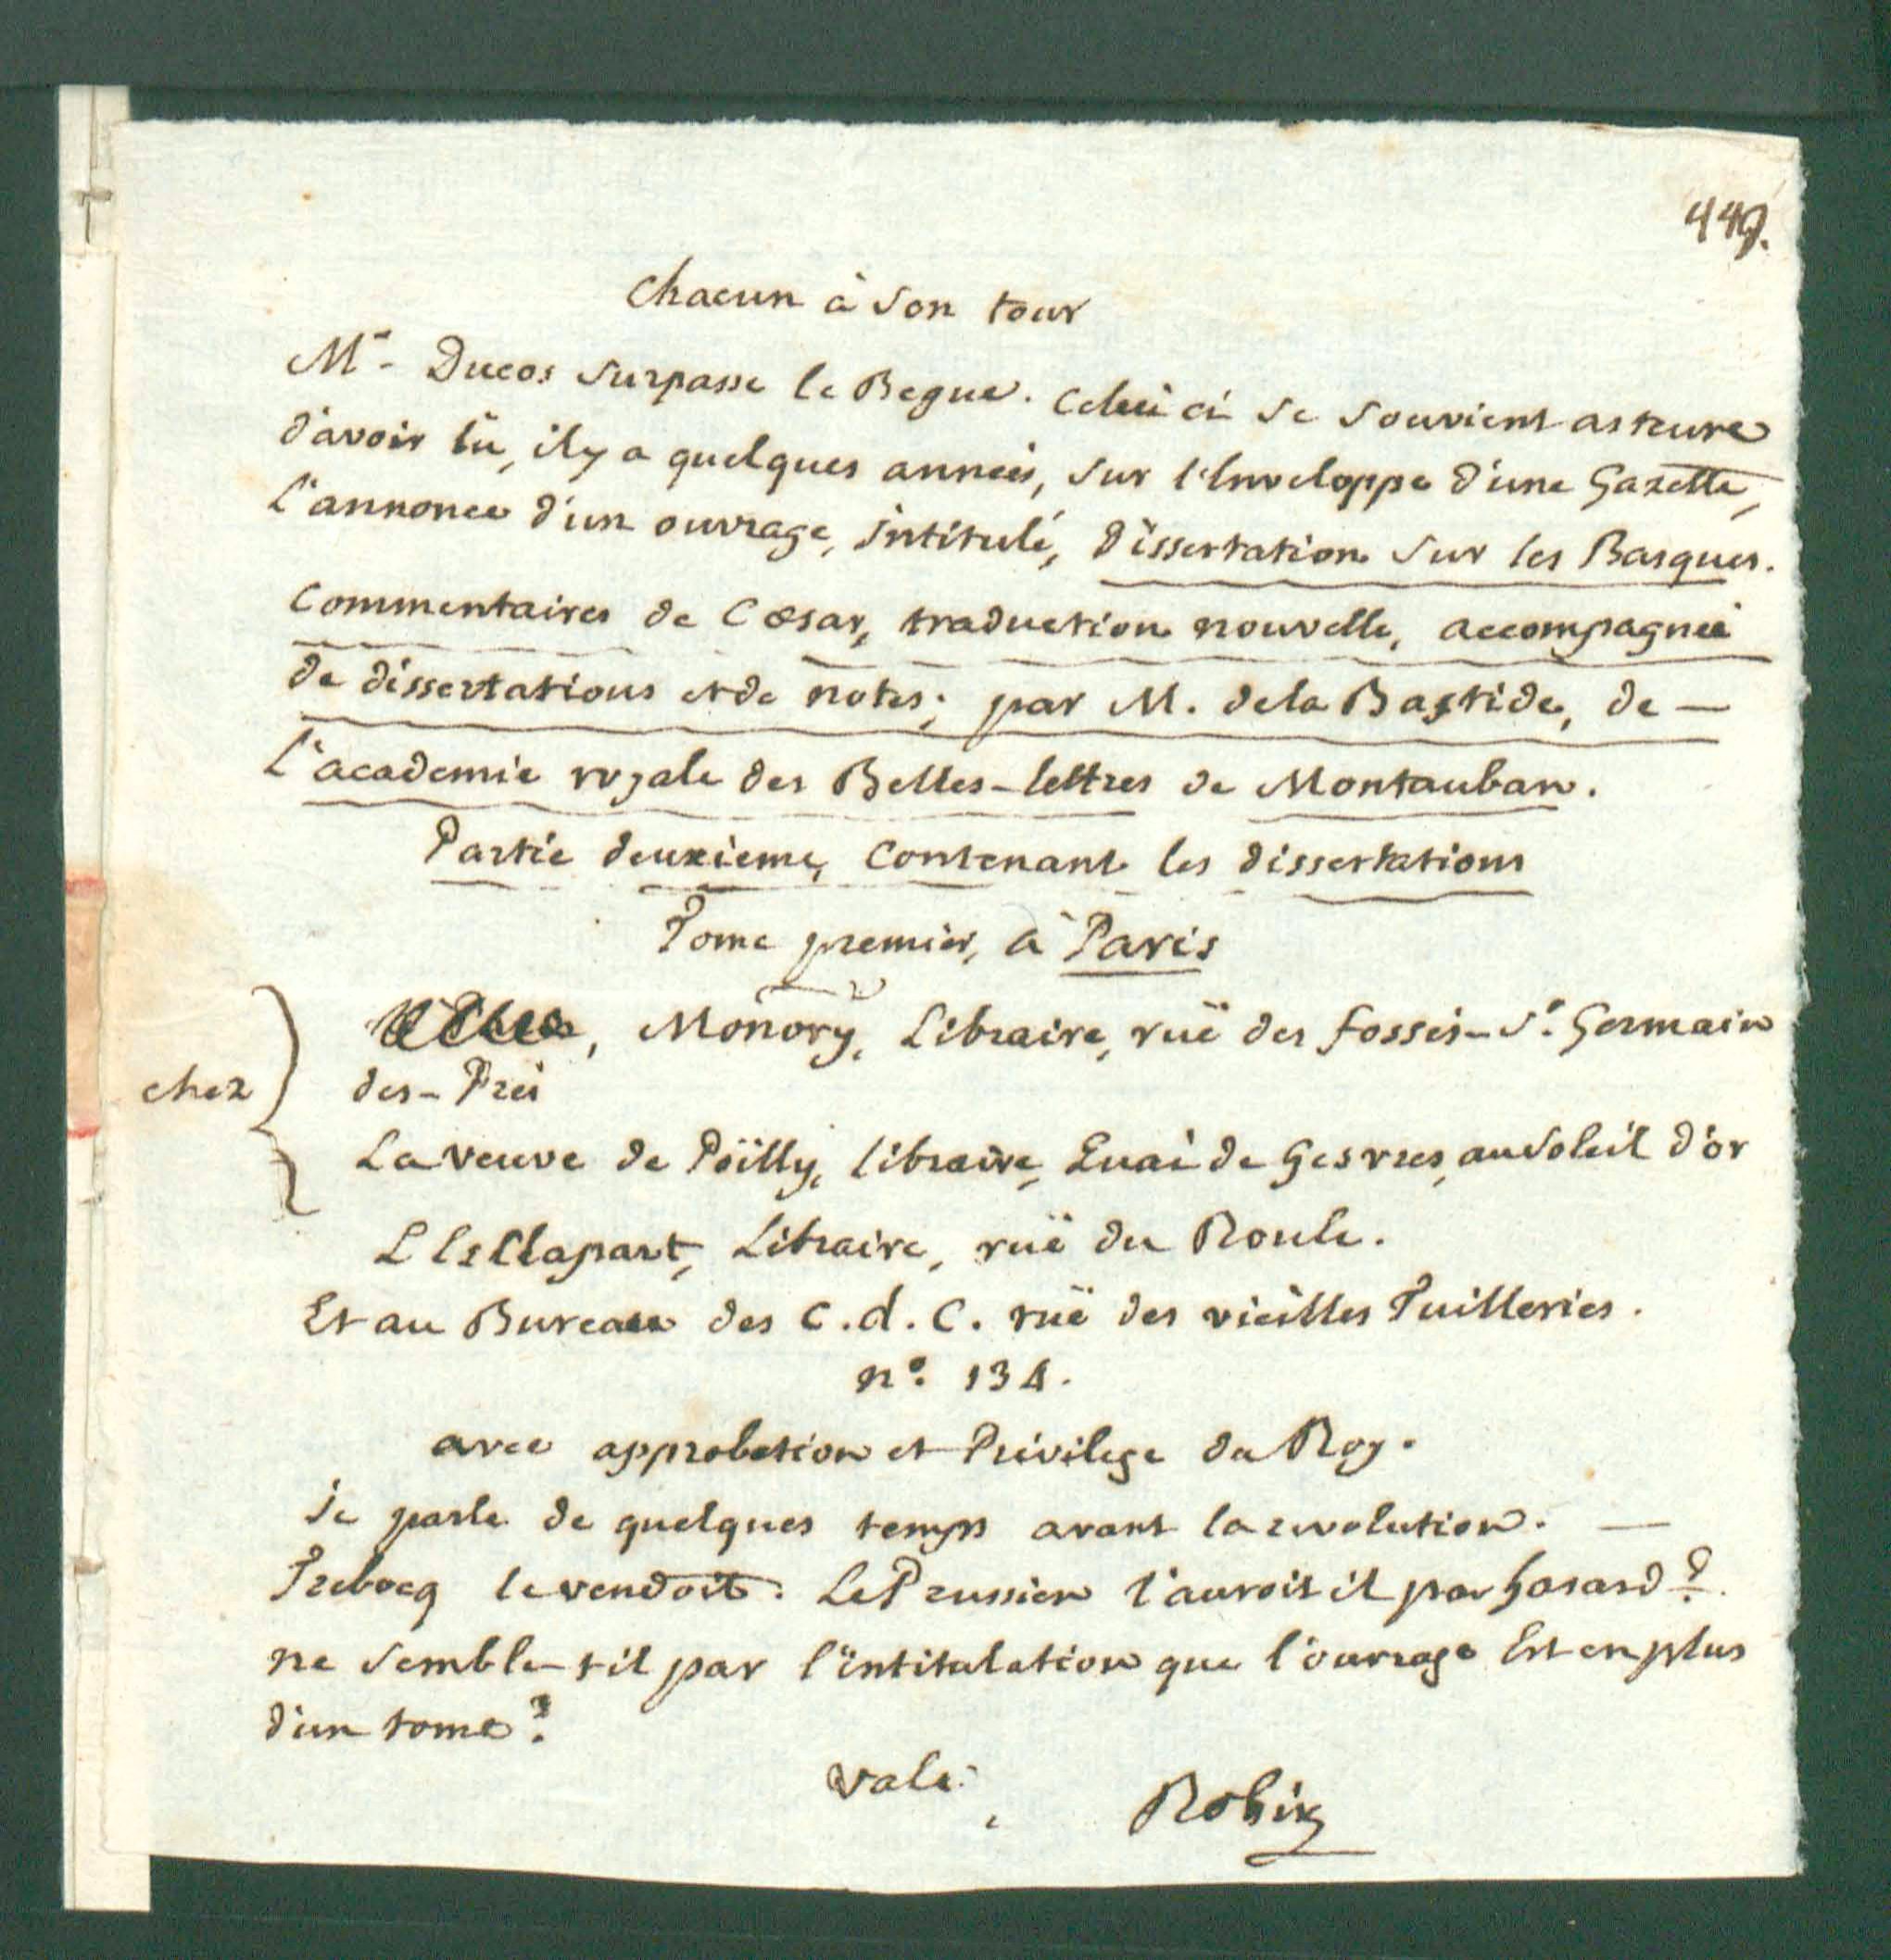 449.
Chacun à son tour
Mr. Ducos surpasse le Begue. Celui ci se souvient asteure
d'avoir lû, il y a quelques années, sur l'Enveloppe d'une Gazette,
l'annonce d'un ouvrage, intitulé, dissertation sur les Basques.
Commentaires de Cœsar, traduction nouvelle, accompagnée
de dissertations et de notes; par M. de la Bastide, de —
l'academie royale des Belles-lettres de Montauban.
Partie deuxieme, contenant les dissertations
Tome premier, à Paris
Monory, Libraire, ruë des fossés-St. Germain
chez des-Prés
La veuve de Poilly, libraire, Quai de Gesvres, au Soleil d'or
Libraire, ruë du Roule.
Et au Bureau des C.d.C. ruë des vieilles Tuilleries.
n°. 134.
avec approbation et Privilege du Roy.
je parle de quelques temps avant la revolution. —
Trebocq le vendoit. Le Prussien l'auroit il par hasard?
ne semble-t-il par l'intitulation que l'ouvrage Est en plus
d'un tome?
vale.
Robin